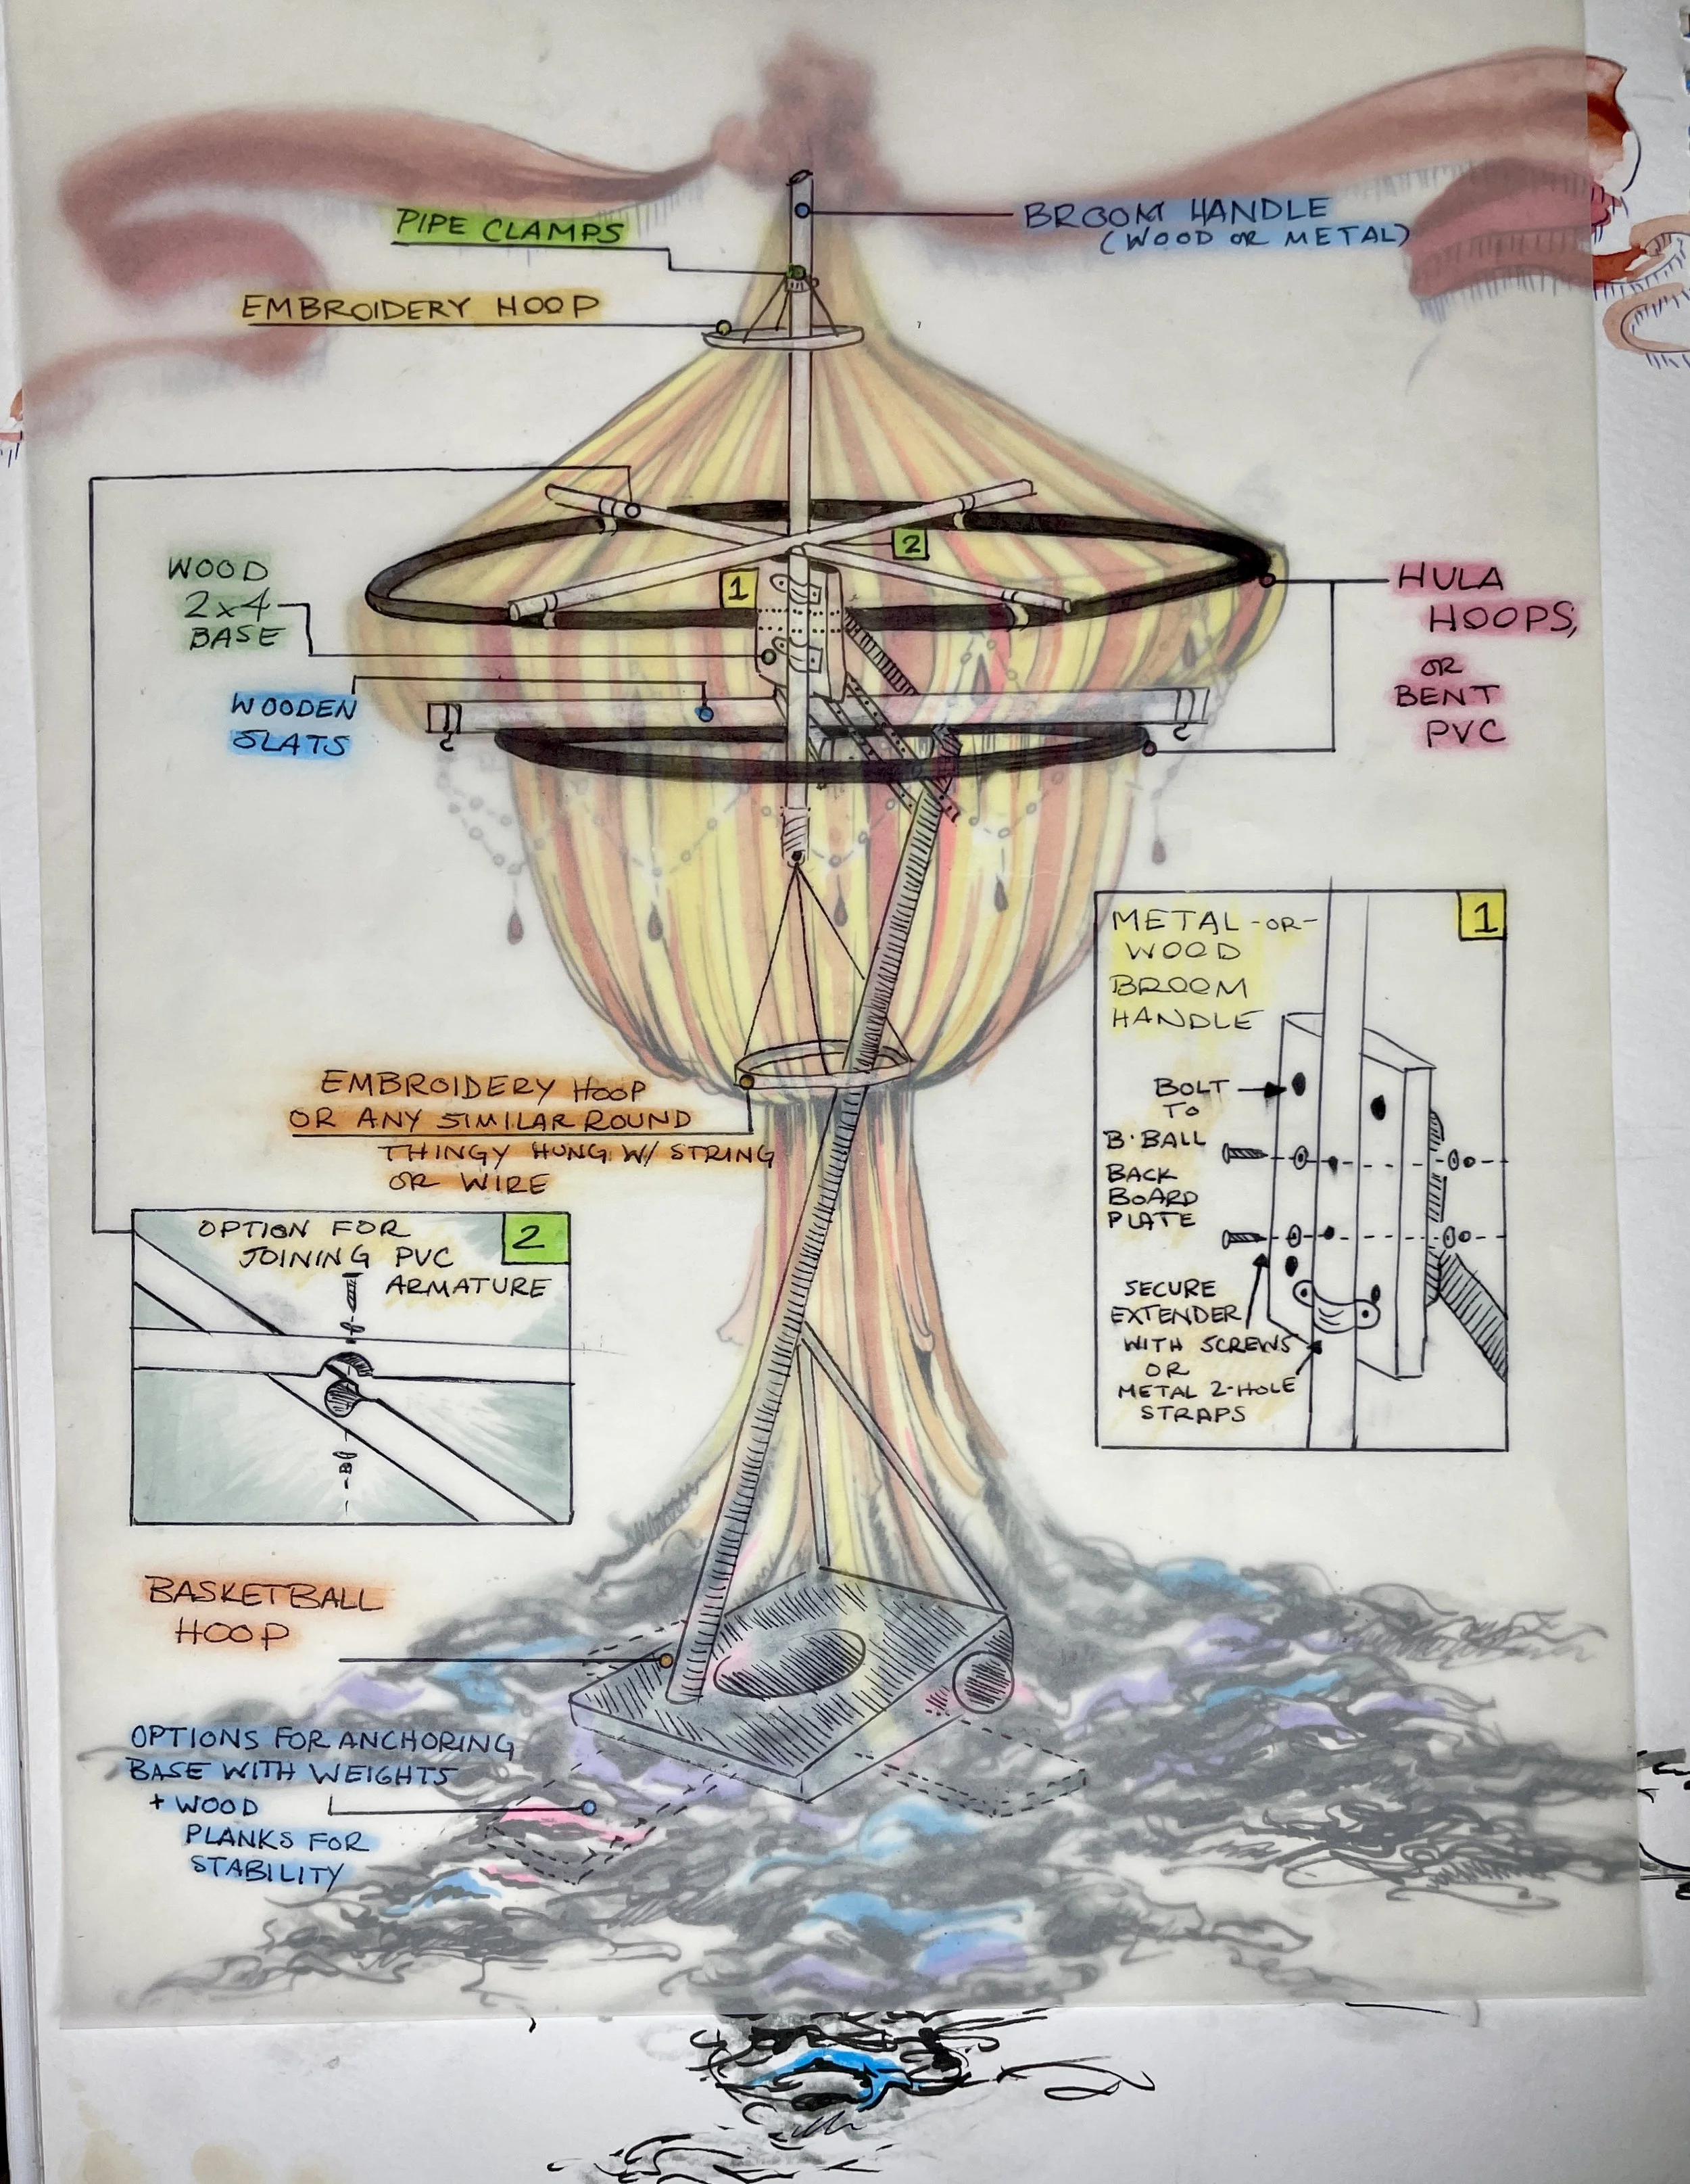 PIPE CLAMPS
BROOM HANDLE
(WOOD OR METAL)
EMBROIDERY HOOP
2
1
WOOD
2x4
BASE
HULA
HOOPS,
OR
BENT
PVC
WOODEN
SLATS
1
METAL -OR-
WOOD
BROOM
HANDLE
BOLT
TO
B·BALL
BACK
BOARD
PLATE
SECURE
EXTENDER
WITH SCREWS
OR
METAL 2-HOLE
STRAPS
EMBROIDERY HOOP
OR ANY SIMILAR ROUND
THINGY HUNG W/ STRING
OR WIRE
OPTION FOR
JOINING PVC
ARMATURE
2
BASKETBALL
HOOP
OPTIONS FOR ANCHORING
BASE WITH WEIGHTS
+ WOOD
PLANKS FOR
STABILITY